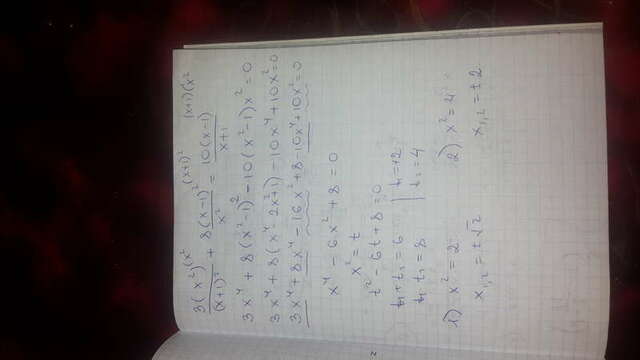 3(x²)(x² (x+1)² (x+1)(x²
3/(x+1)² + 8(x-1)²/x² = 10(x-1)/x+1
3x⁴ + 8(x²-1)² - 10(x²-1)x² = 0
3x⁴ + 8(x⁴ - 2x²+1) - 10x⁴ + 10x² = 0
3x⁴ + 8x⁴ - 16x² + 8 - 10x⁴ + 10x² = 0
x⁴ - 6x² + 8 = 0
x² = t
t² - 6t + 8 = 0
t₁ + t₂ = 6 | t₁ = +2
t₁ t₂ = 8 | t₂ = 4
1) x² = 2 2) x² = 4
x₁,₂ = ±√2 x₁,₂ = ±2